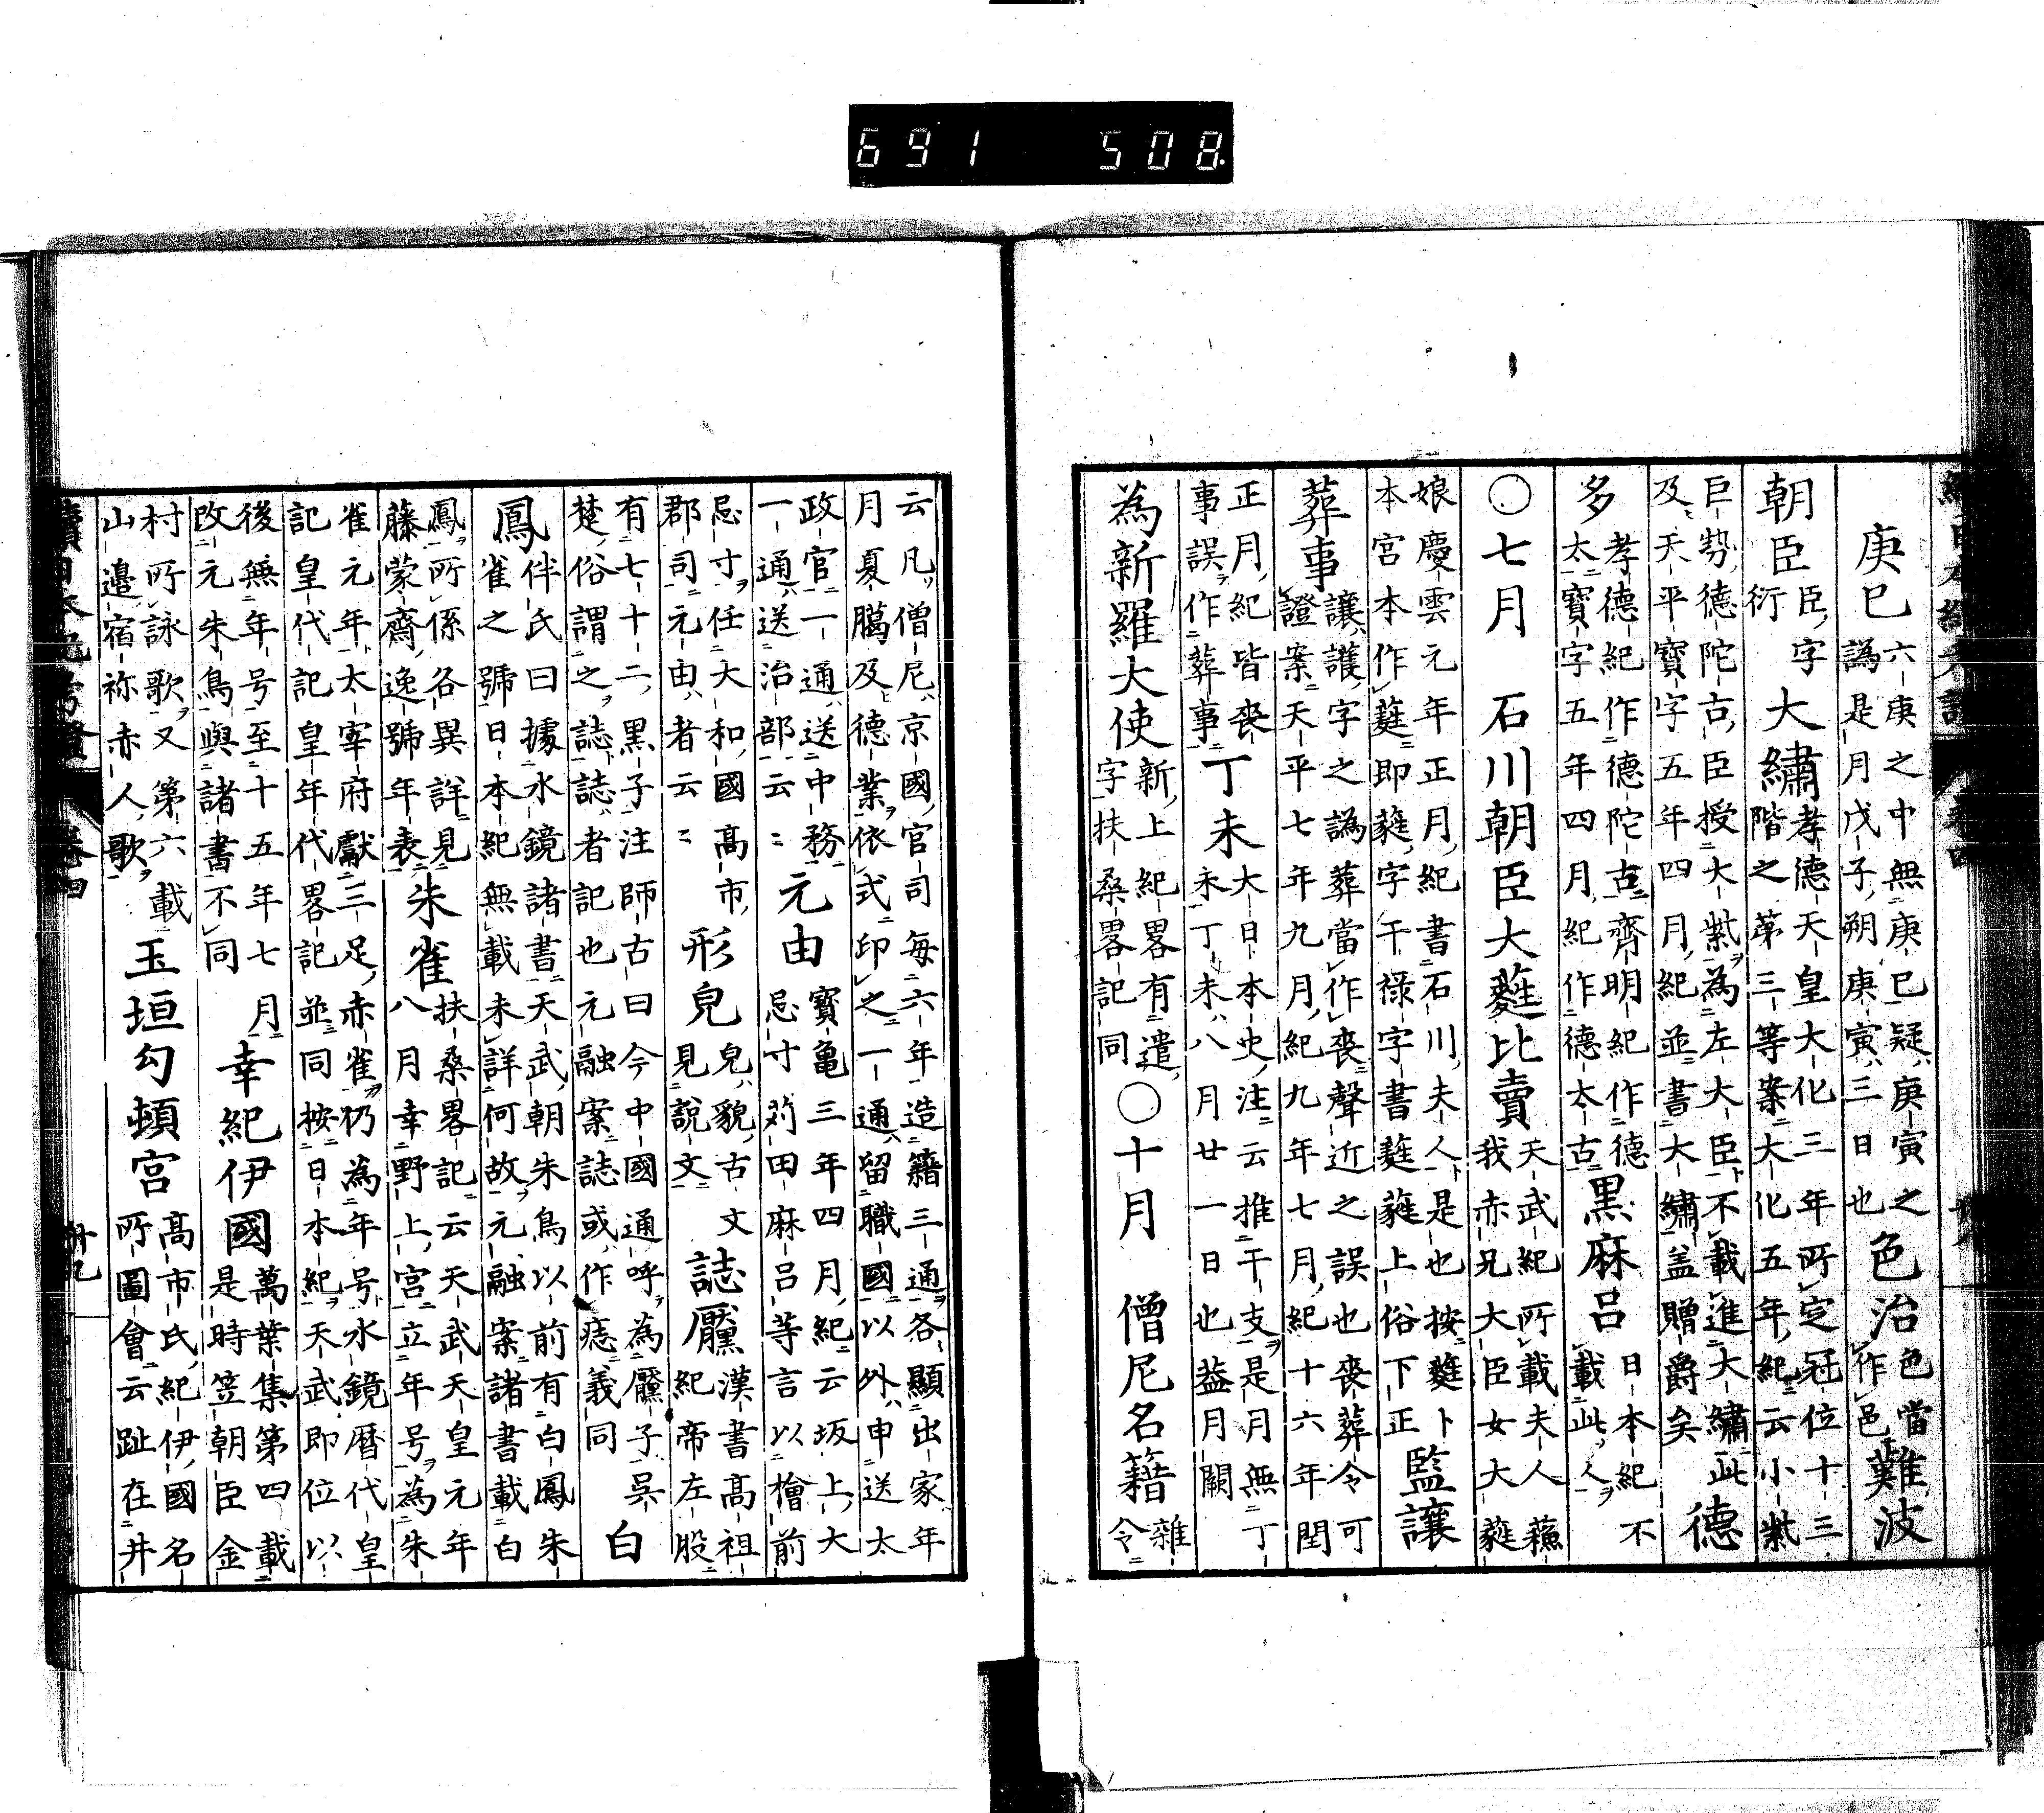 691 508
庚巳六庚之中無庚巳疑庚寅之
譌是月戊子朔庚寅三日也色治色當
作邑難波
朝臣臣字
衍大繡孝德天皇大化三年所定冠位十三
階之第三等案大化五年紀云小紫
巨勢德陀古臣授大紫為左大臣不載進大繡此
及天平寶字五年四月紀並書大繡盖贈爵矣德
多孝德紀作德陀古齊明紀作德
太寶字五年四月紀作德太古黒麻呂日本紀不
載此人
○七月 石川朝臣大蕤比賣天武紀所載夫人蘓
我赤兄大臣女大蕤
娘慶雲元年正月紀書石川夫人是也按蕤卜
本宮本作蕤即蕤字干禄字書蕤蕤上俗下正監讓
葬事讓護字之譌葬當作喪聲近之誤也喪葬令可
證案天平七年九月紀九年七月紀十六年閏
正月紀皆喪
事誤作葬事丁未大日本史注云推干支是月無丁
未丁未八月廿一日也葢月闕
為新羅大使新上紀畧有遣
字扶桑畧記同○十月 僧尼名籍雜
令
云凡僧尼京國官司毎六年造籍三通各顯出家年
月夏臈及德業依式印之一通留職國以外申送太
政官一通送中務
一通送治部云〻元由寶亀三年四月紀云坂上大
忌寸苅田麻呂等言以檜前
忌寸任大和國高市
郡司元由者云〻形皃皃貌古文
見説文誌黶漢書高祖
紀帝左股
有七十二黒子注師古曰今中國通呼為黶子呉
楚俗謂之誌誌者記也元融案誌或作痣義同白
鳳伴氏曰據水鏡諸書天武朝朱鳥以前有白鳳朱
雀之號日本紀無載未詳何故元融案諸書載白
鳳所係各異詳見
藤蒙齋逸號年表朱雀扶桑畧記云天武天皇元年
八月幸野上宮立年号為朱
雀元年太宰府獻三足赤雀仍為年号水鏡暦代皇
記皇代記皇年代畧記並同按日本紀天武即位以
後無年号至十五年七月
改元朱鳥與諸書不同幸紀伊國萬葉集第四載
是時笠朝臣金
村所詠歌又第六載
山邊宿祢赤人歌玉垣勾頓宮高市氏紀伊國名
所圖會云趾在井